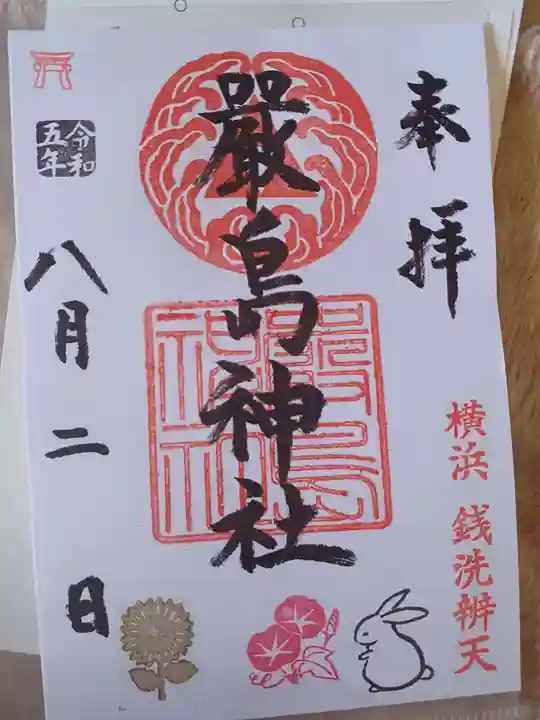 奉拝
横浜 銭洗辨天
嚴島神社
嚴島
神社
令和
五年
八月二日